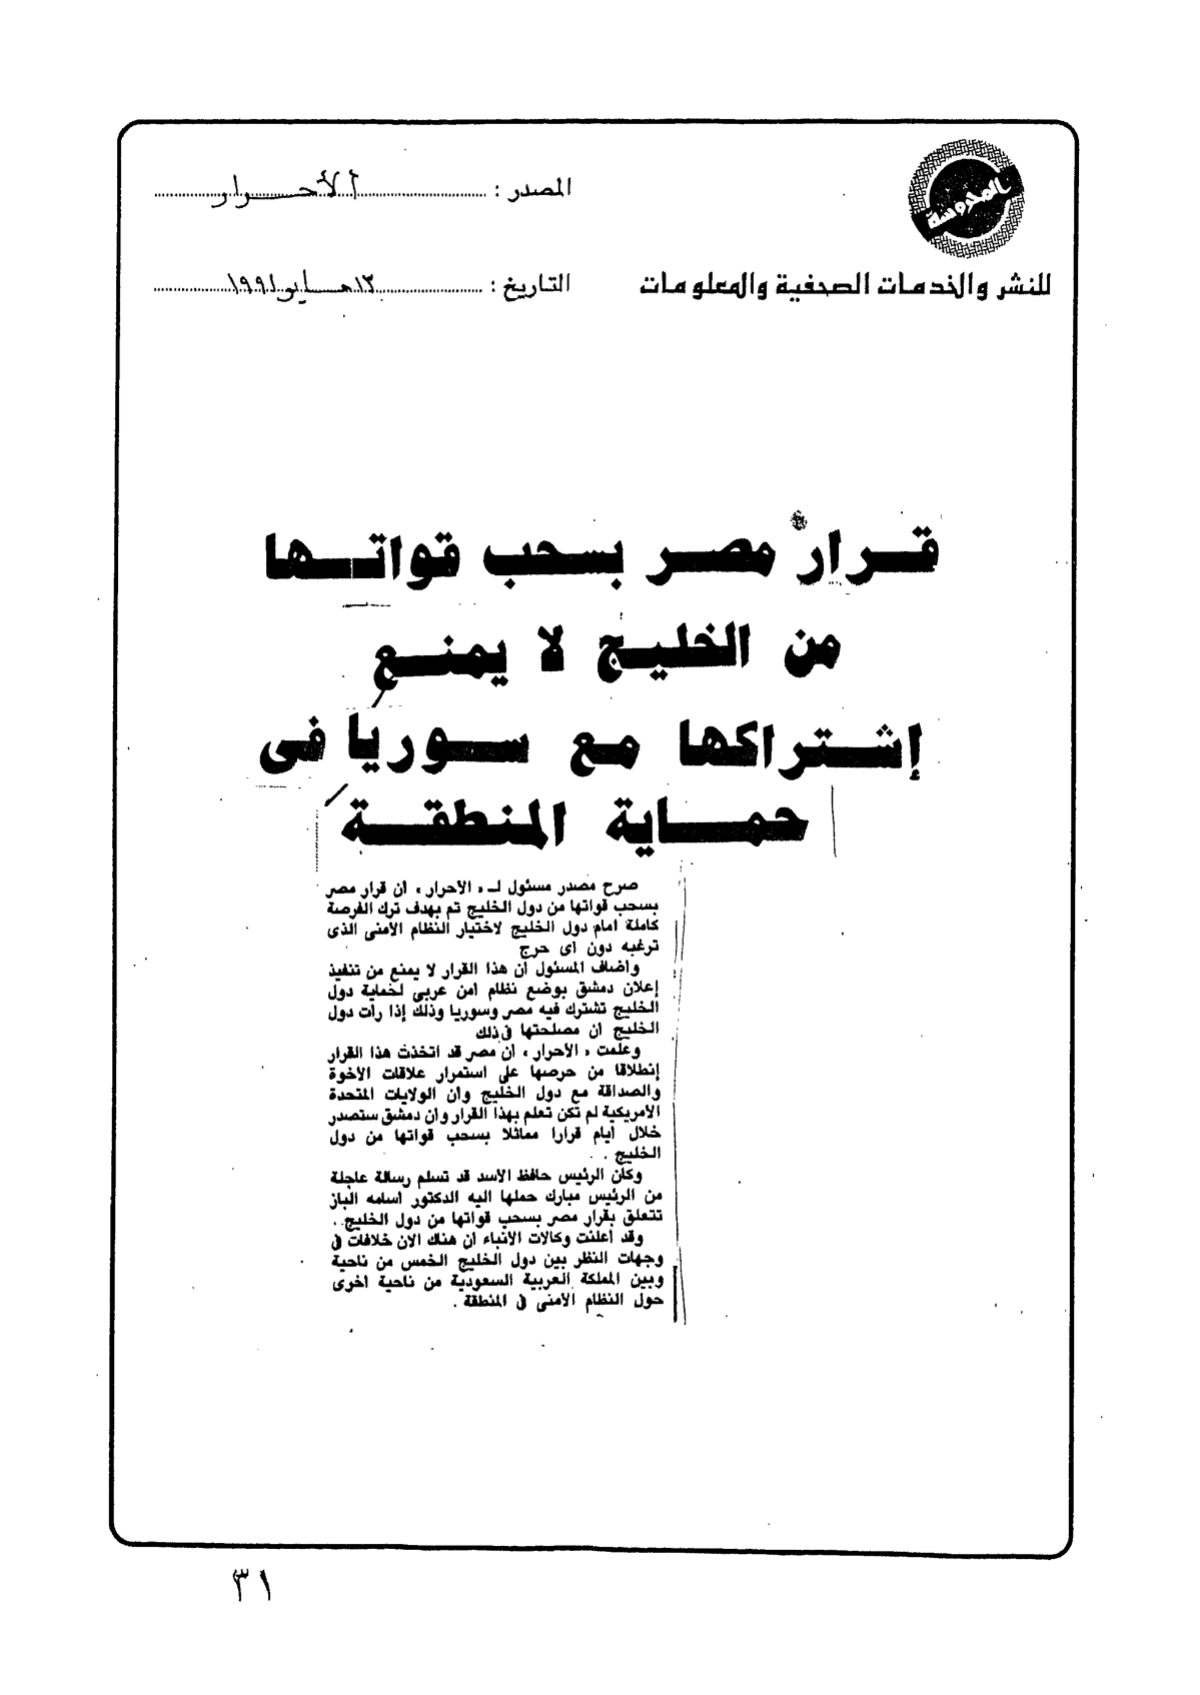 المحروسة
للنشر والخدمات الصحفية والمعلومات
المصدر : الأحرار
التاريخ : ١٣ مايو ١٩٩١
قرار مصر بسحب قواتها
من الخليج لا يمنع
إشتراكها مع سوريا فى
حماية المنطقة
صرح مصدر مسئول لـ « الأحرار » ان قرار مصر
بسحب قواتها من دول الخليج تم بهدف ترك الفرصة
كاملة امام دول الخليج لاختيار النظام الأمنى الذى
ترغبه دون اى حرج
واضاف المسئول ان هذا القرار لا يمنع من تنفيذ
إعلان دمشق بوضع نظام امن عربى لحماية دول
الخليج تشترك فيه مصر وسوريا وذلك إذا رأت دول
الخليج ان مصلحتها فى ذلك
وعلمت « الأحرار » ان مصر قد اتخذت هذا القرار
إنطلاقا من حرصها على استمرار علاقات الأخوة
والصداقة مع دول الخليج وان الولايات المتحدة
الامريكية لم تكن تعلم بهذا القرار وان دمشق ستصدر
خلال أيام قرارا مماثلا بسحب قواتها من دول
الخليج . .
وكان الرئيس حافظ الاسد قد تسلم رسالة عاجلة
من الرئيس مبارك حملها اليه الدكتور اسامه الباز
تتعلق بقرار مصر بسحب قواتها من دول الخليج . .
وقد أعلنت وكالات الأنباء ان هناك الان خلافات فى
وجهات النظر بين دول الخليج الخمس من ناحية
وبين المملكة العربية السعودية من ناحية اخرى
حول النظام الأمنى فى المنطقة .
٣١